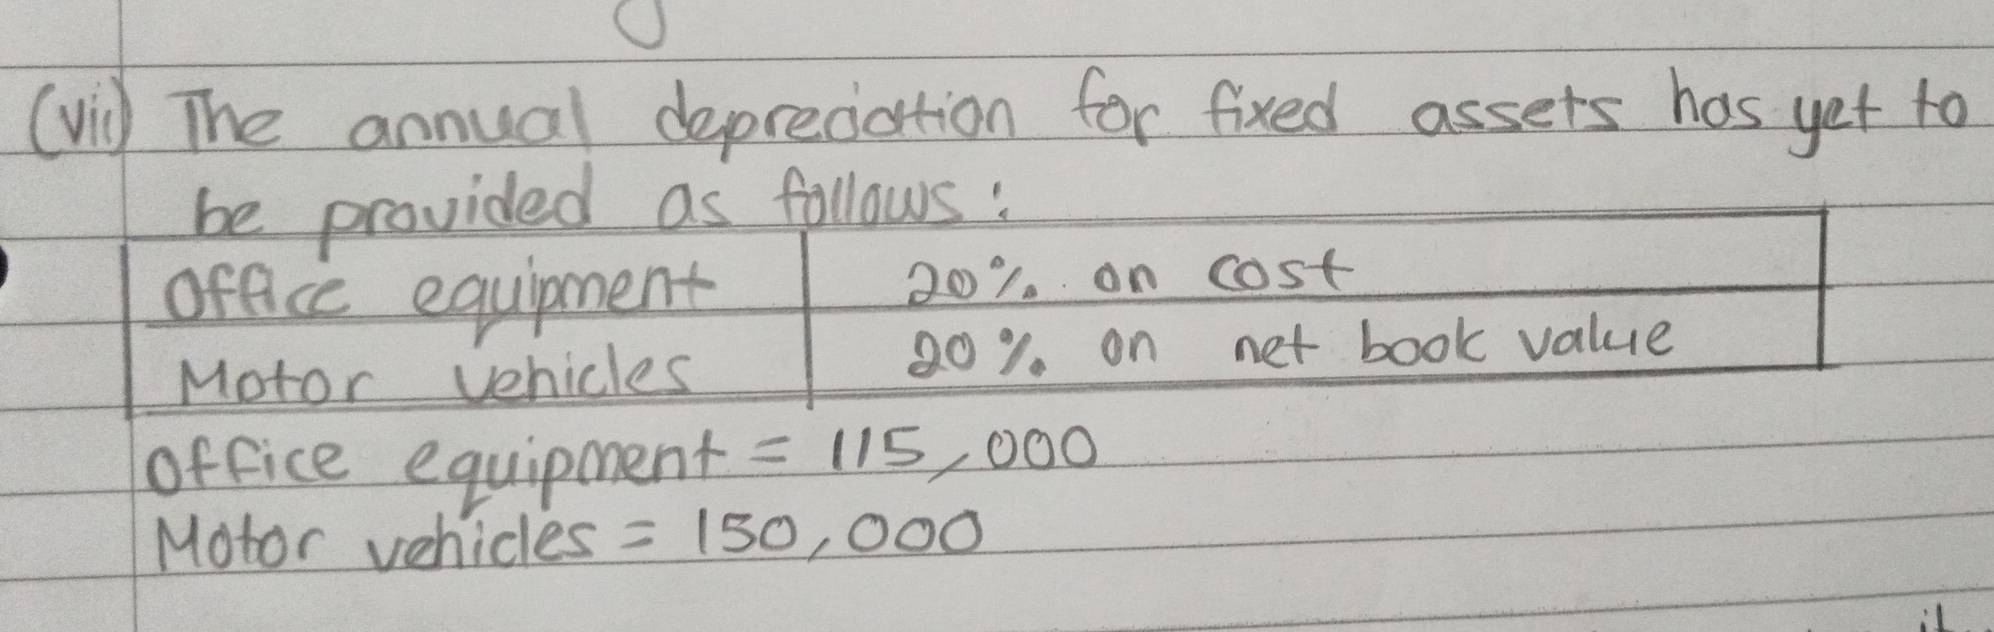 (vii) The annual depreciation for fixed assets has yet to
be provided as follows:
Office equipment 20% on cost
Motor vehicles 20% on net book value
Office equipment = 115,000
Motor vehicles = 150,000